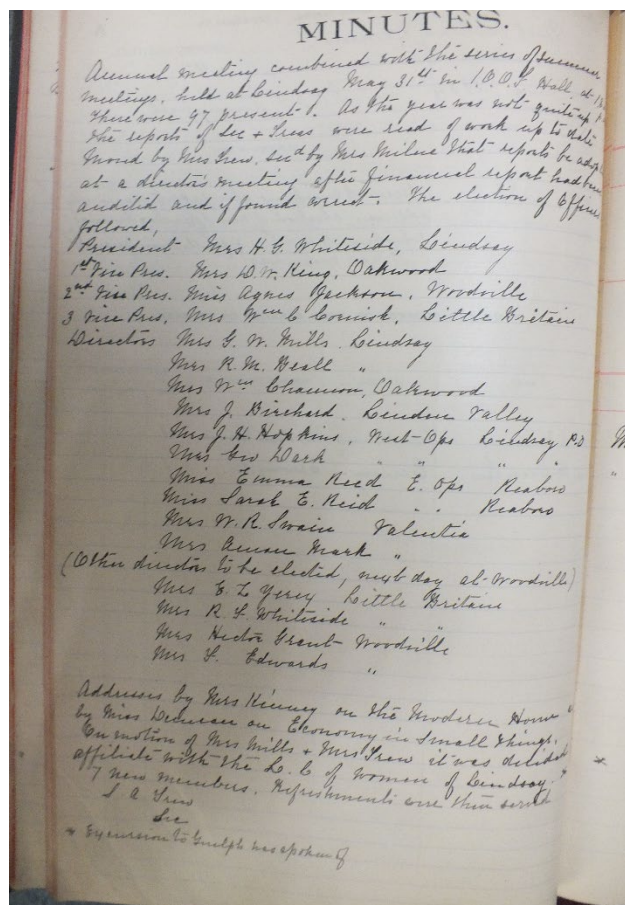 MINUTES.
Annual meeting combined with the series of summer
meetings, held at Lindsay May 31st in I.O.O.F. Hall at
There were 97 present. As the year was not quite up
the reports of Sec + Treas were read of work up to date
Moved by Mrs Trew, secd by Mrs Milne that reports be adop
at a directors meeting after financial report had been
audited and if found correct. The election of Office
followed,
President Mrs H. G. Whiteside, Lindsay
1st Vice Pres. Mrs D. W. King, Oakwood
2nd Vice Pres. Miss Agnes Jackson, Woodville
3 Vice Pres. Mrs Wm C Cornish, Little Britain
Directors Mrs G. W. Mills. Lindsay
Mrs R. M. Beall "
Mrs Wm Channon, Oakwood
Mrs J. Birchard. Linden Valley
Mrs J. H. Hopkins, West-Ops Lindsay P.O
Mrs Geo Dark " " " "
Miss Emma Reid E. Ops Reaboro
Miss Sarah E. Reid " " Reaboro
Mrs W. R. Swain Valentia
Mrs Mark "
(Other directors to be elected, next day at Woodville)
Mrs E. L. Yerex Little Britain
Mrs R. S. Whiteside " "
Mrs Hector Grant Woodville
Mrs S. Edwards "
Addresses by Mrs Kinney on the Modern Home "
by Miss Duncan on Economy in Small Things.
On motion of Mrs Mills + Mrs Trew it was decided
affiliate with the L. C of Women of Lindsay. *
7 new members. Refreshments were then served
S A Trew
Sec
* Excursion to Guelph was spoken of